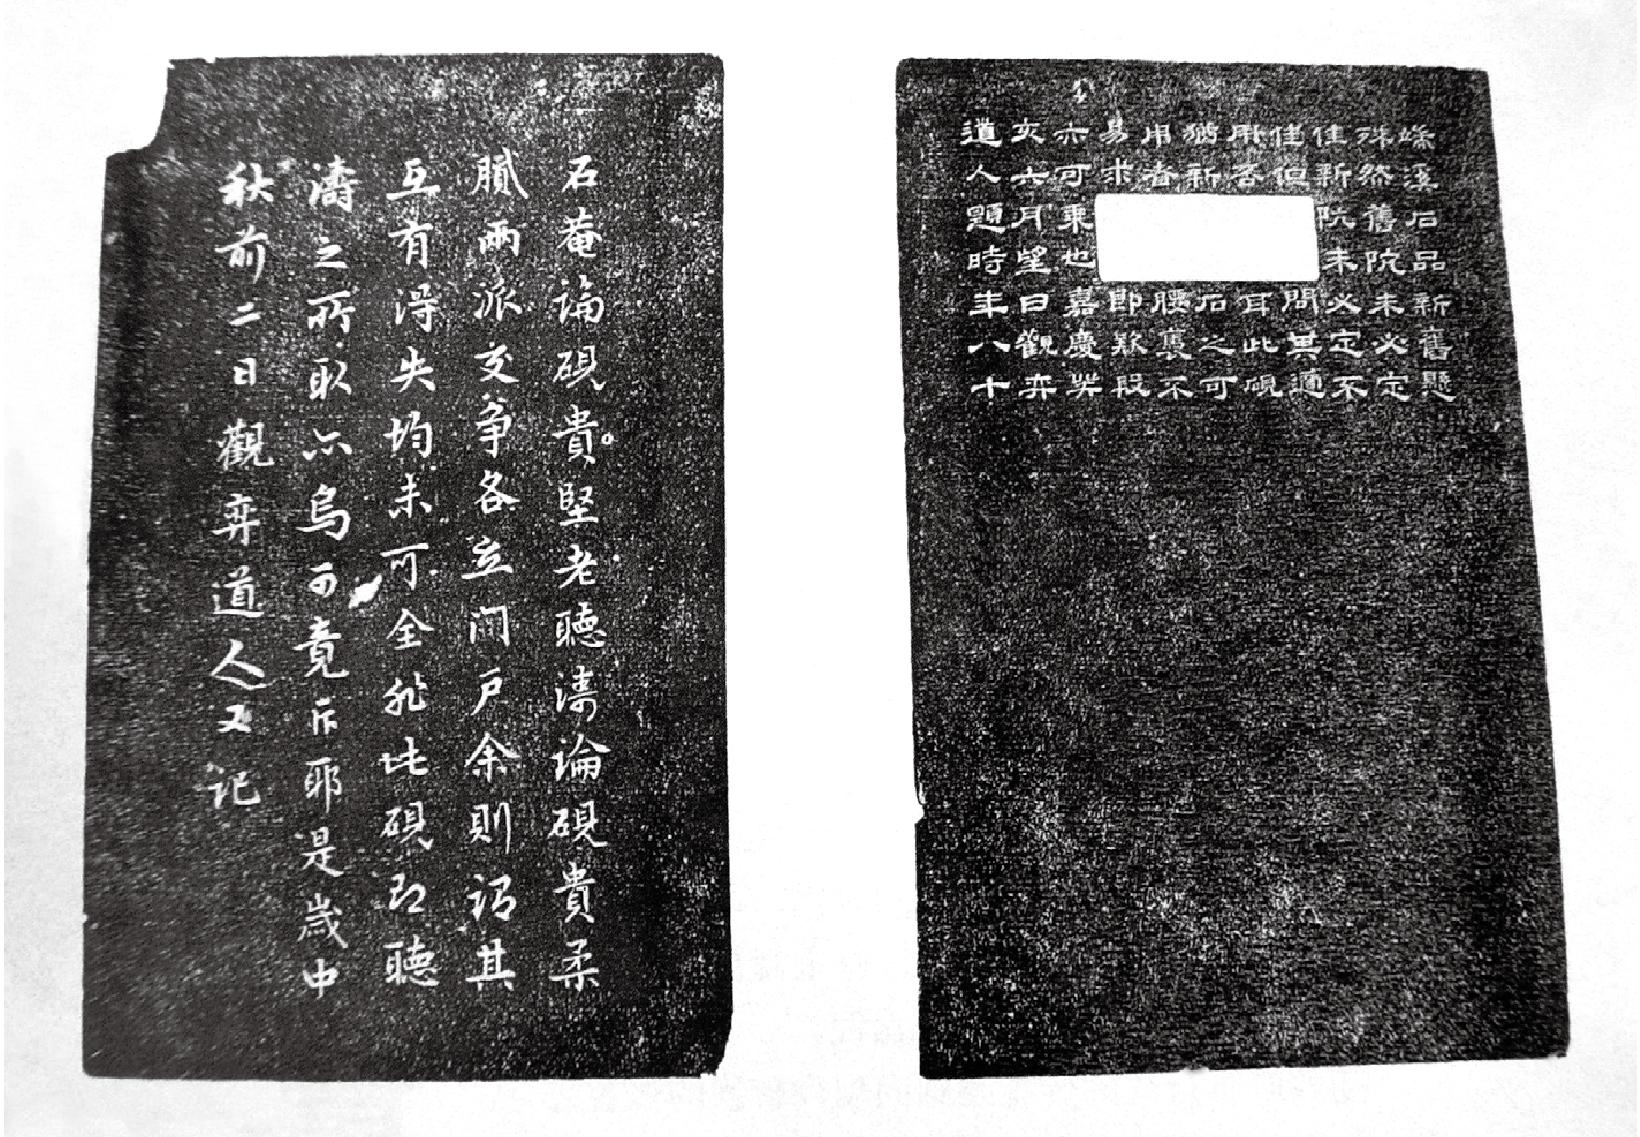 端溪石品新舊懸
殊然舊阬未必定
佳新阬未必定不
佳但問其適
用否耳此硯
猶新石之可
用者腰褭不
易求即款段
亦可乗也嘉慶癸
亥六月望日觀弈
道人題時年八十
石菴論硯貴堅老聽濤論硯貴柔
膩兩派交爭各立門戶余則謂其
互有得失均未可全非此硯即聽
濤之所取亦烏可竟斥耶是歲中
秋前二日觀弈道人又記